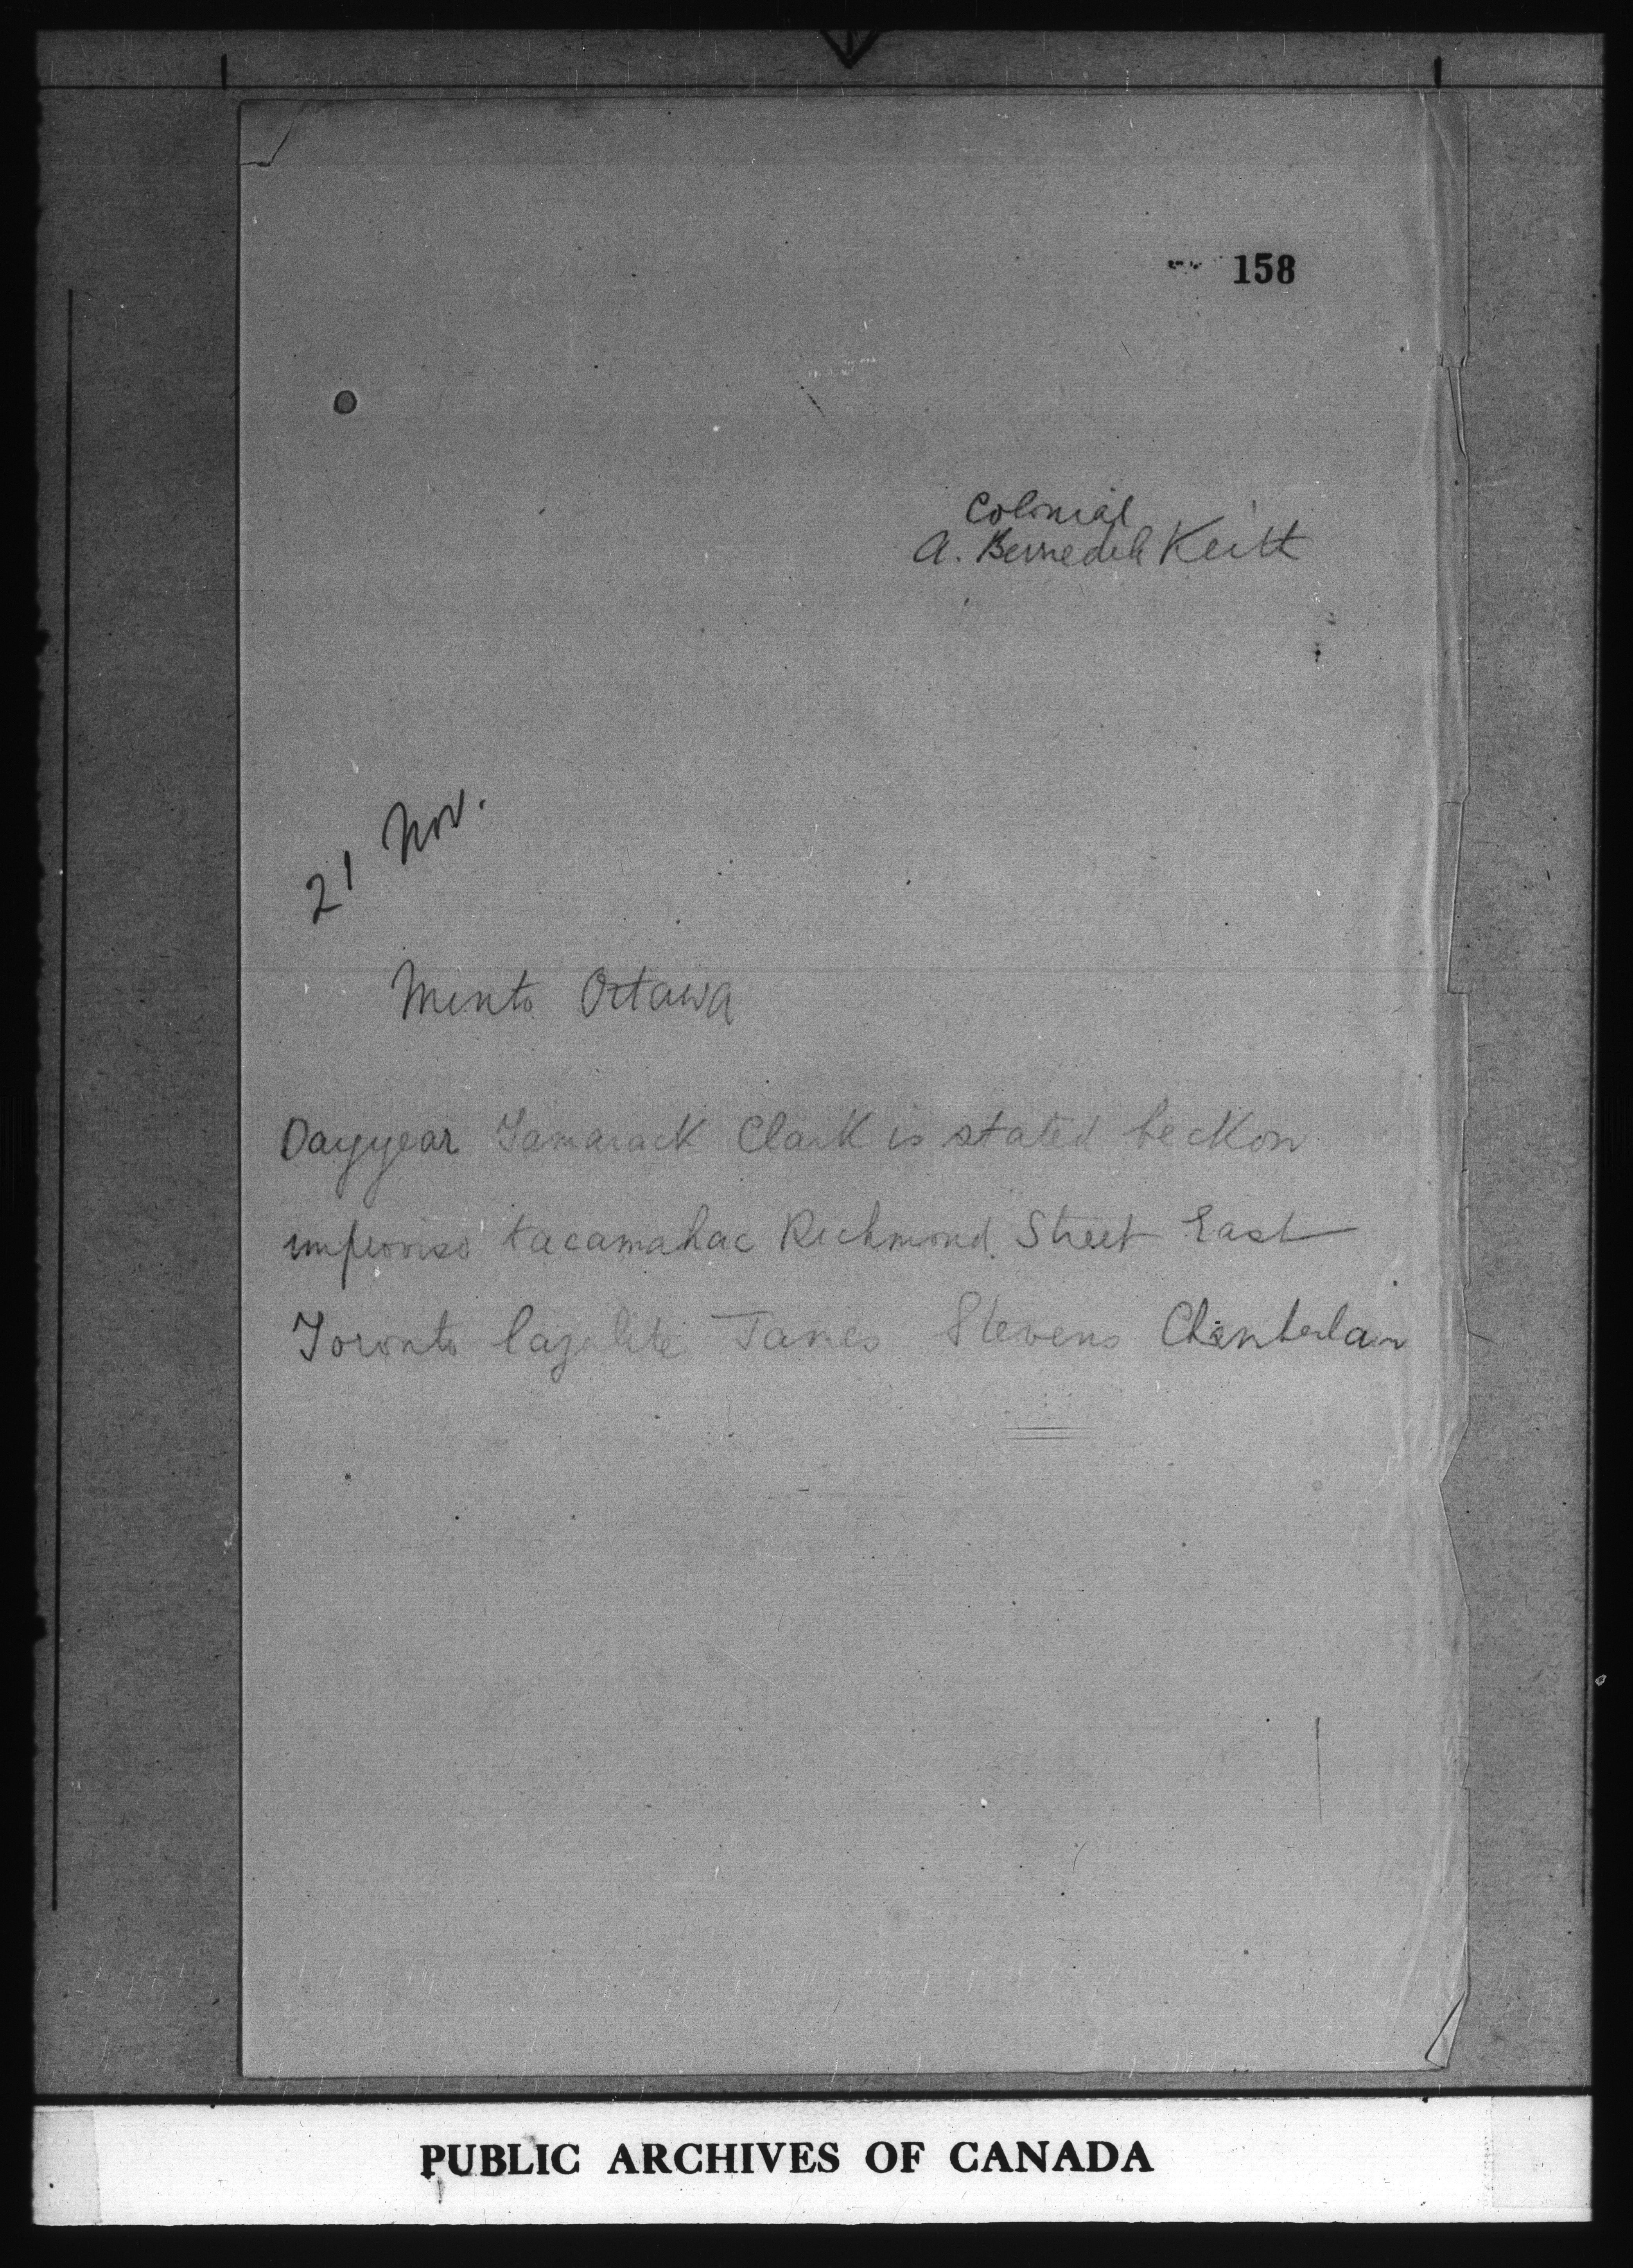 158
Colonial
A. Berriedale Keith
21 Nov.
Minto Ottawa
Dayyear Tamarack Clark is stated beckon
improviso tacamahac Richmond Street East
Toronto lazulite James Stevens Chamberlain
PUBLIC ARCHIVES OF CANADA